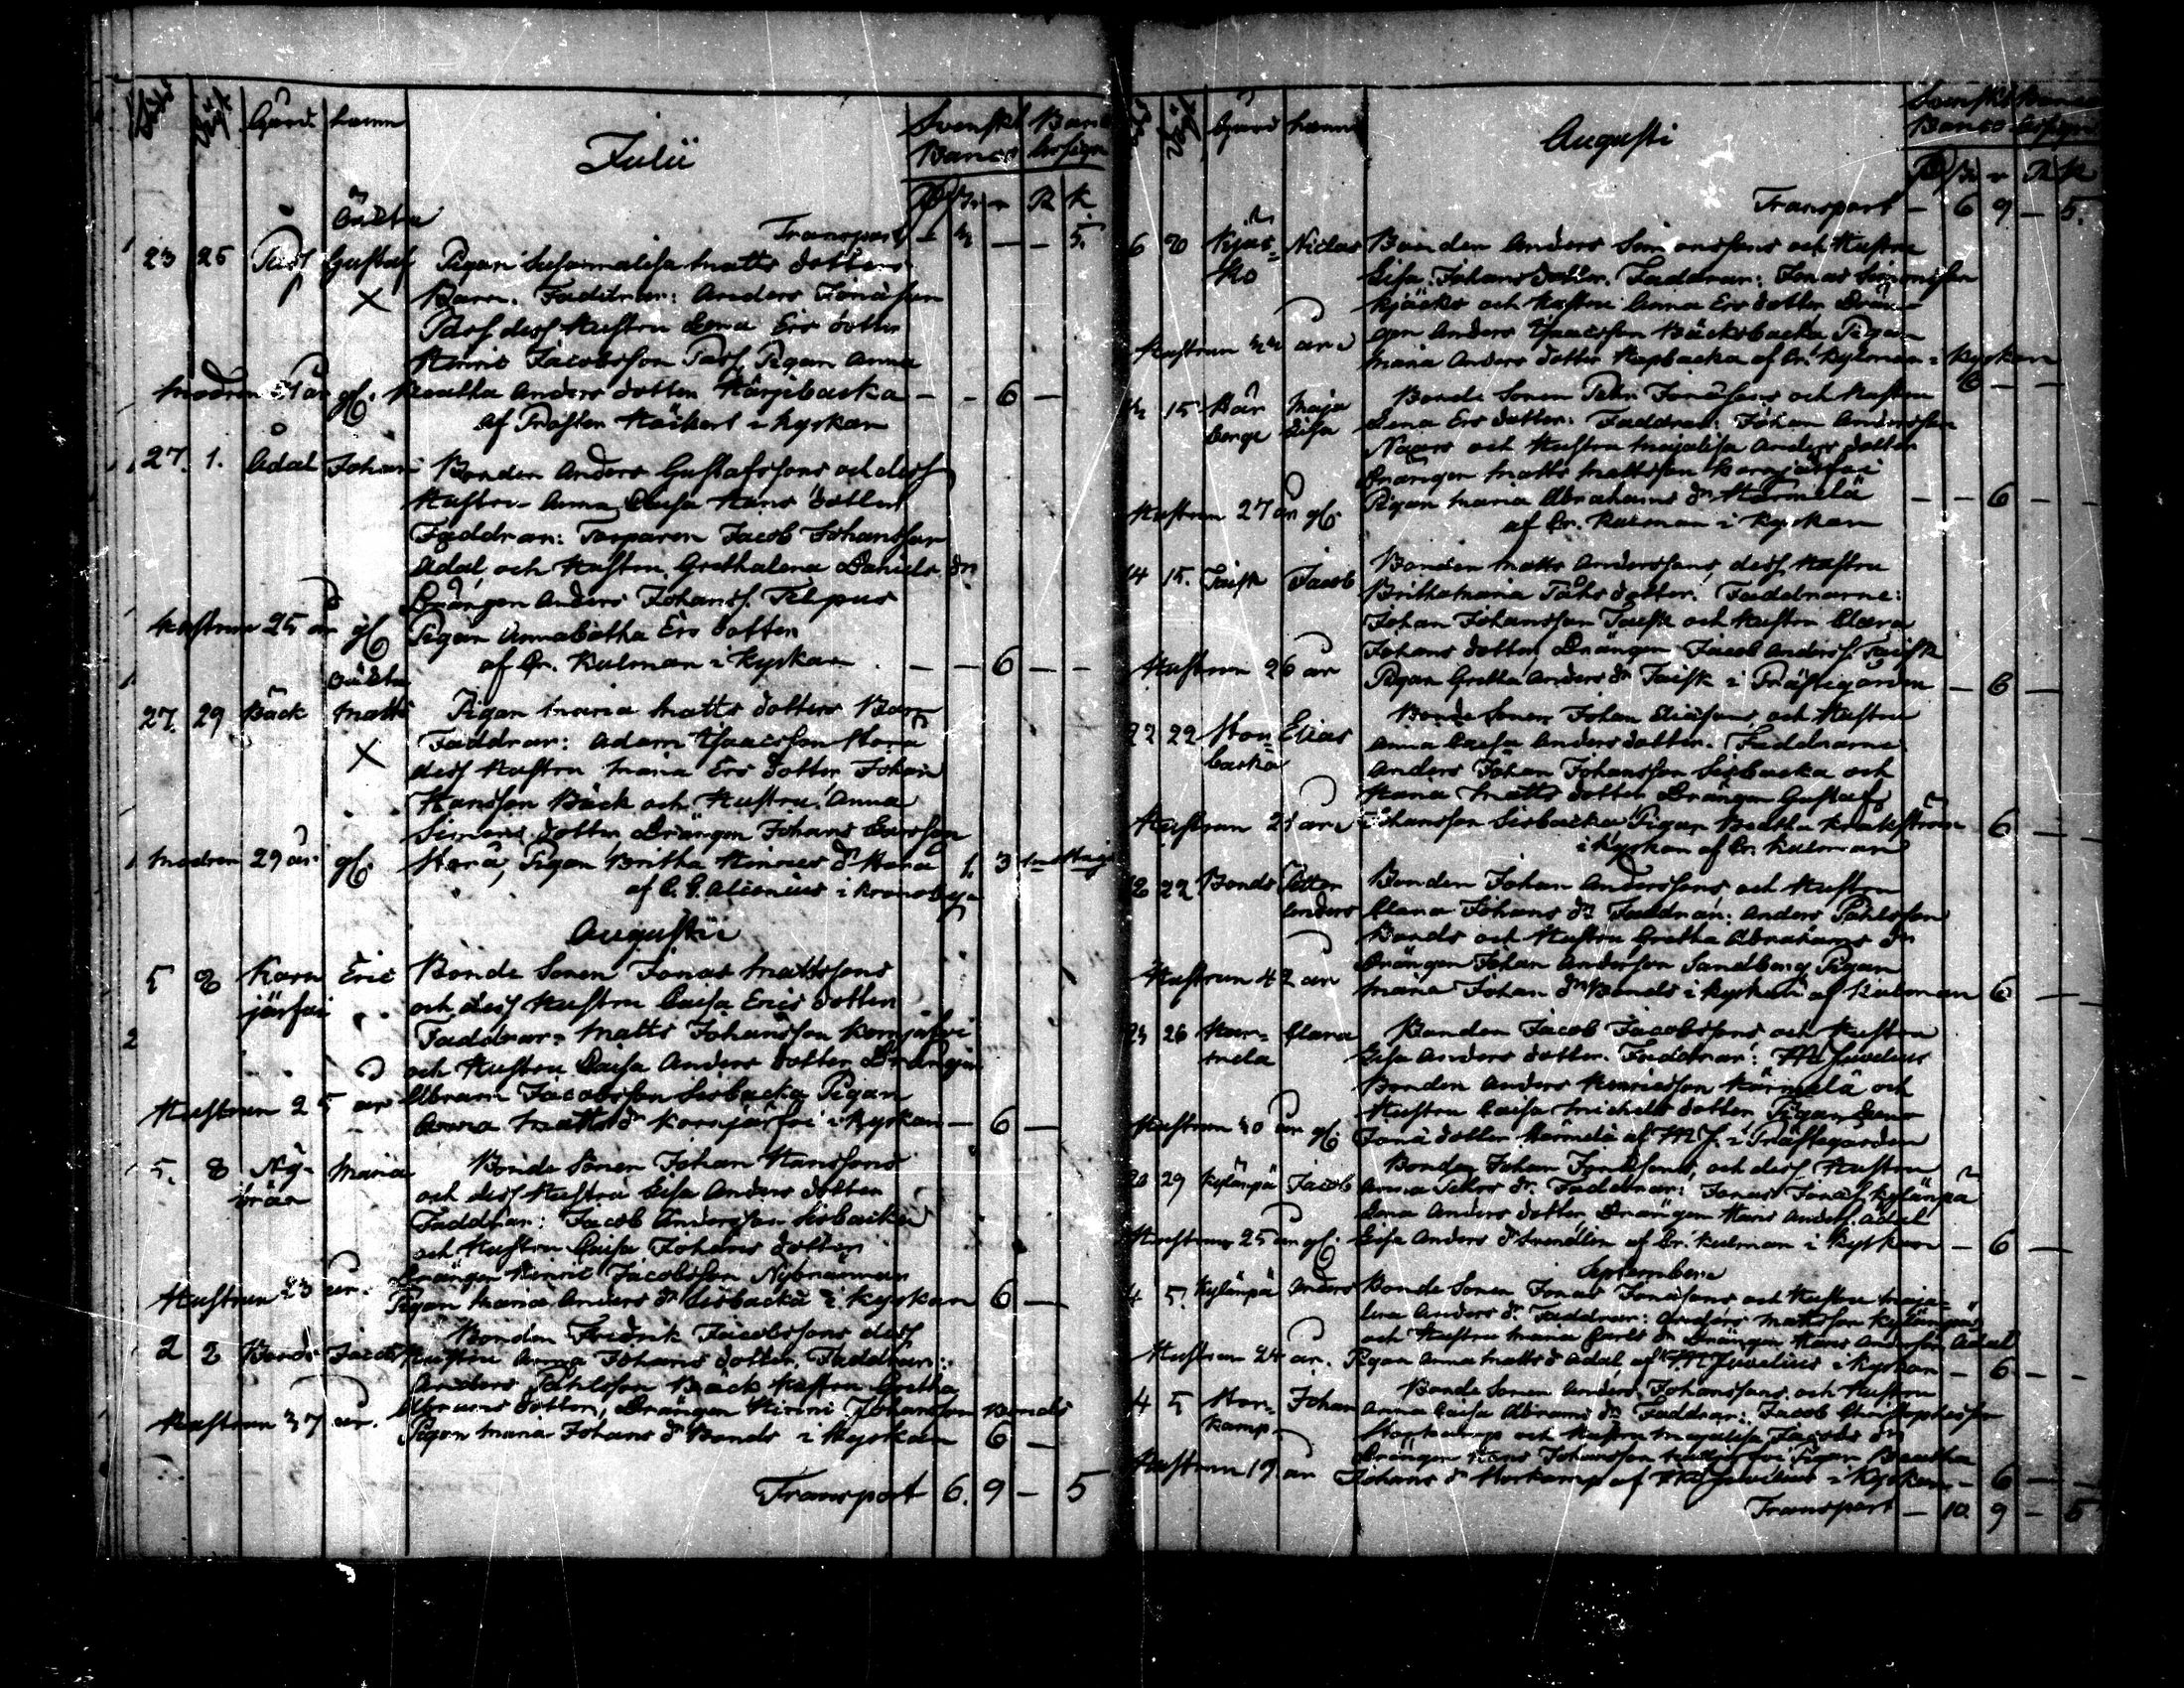 Gård. Namn
Julii
Svenskt Banco
Banco Assign
R k
Oäkta
Transport - 4 - - 5.
23 25 Pass Gustaf Pigan Susannalisa Matts dotters
Barn. Faddrar: Anders Jonasson
Pass dess Hustru Lena Ers dotter
Hinric Jacobsson Pass, Pigan Anna
Modren år gl. Beatha Anders dotter Härjbacka - - 6 -
af Prosten Häckert i Kyrkan
27. 1. Ådal Johan Bonden Anders Gustafssons och dess
Hustru Anna Caisa Hans dotter
Faddrar: Torparen Jacob Johansson
Ådal, och Hustru Grethalena Daniels dr
Drängen Anders Johanss. Telpus
Hustrun 25 år gl. Pigan Annabeatha Ers dotter
af Cr. Kulman i Kyrkan - - 6 - -
Oäkta
27. 29 Bäck Matts Pigan Maria Matts dotters Barn
Faddrar: Adam Isaacsson Storå
dess Hustru Maria Ers dotter Johan
Hansson Bäck och Hustru Anna
Simons dotter Drängen Johans Larsson
Modren 29 år gl. Storå, Pigan Britha Hinrics dr Storå 1. 3
af C. G. Alcenius i Kronoby
Augustii
5 8 Kornjärfvi Eric Bonde Sonen Jonas Mattssons
och dess Hustru Caisa Erics dotter
Faddrar: Matts Johansson Kornjärfvi
och Hustru Caisa Anders dotter Drängen
Hustrun 25 år Abram Jacobsson Sisbacka Pigan
Anna Matts dr Kornjärfvi i Kyrkan - 6 -
5. 8 Nybrän Maria Bonde Sonen Johan Hanssons
och dess Hustru Lisa Anders dotter
Faddrar: Jacob Andersson Sisbacka
och Hustru Caisa Johans dotter
Drängen Hinric Jacobsson Nybränman
Hustrun 23 år. Pigan Maria Anders dr Sisbacka i Kyrkan 6 -
2 2 Bonds Jacob Bonden Fredrik Jacobssons dess
Hustru Anna Johans dotter, Faddrar:
Anders Pahlsson Bäck Hustru Gretha
Abrams dotter, Drängen Hinric Johansson Bonds
Hustrun 37 år. Pigan Maria Johans dr Bonds i Kyrkan 6 -
Transport 6. 9 - 5
Gård Namn
Augusti
Svenskt
Banco Assign
Transport - 6 9 - 5.
6 8 Kjäcko Niclas Bonden Anders Simonssons och Hustru
Lisa Johans dotter. Faddrar: Jonas Simonsson
Kjäcko och Hustru Anna Ers dotter Drän-
gen Anders Isaacsson Bäcksbacka Pigan
Hustrun 44 år Maria Anders dotter Kopbacka af Cr. Kulman i Kyrkan
6 - -
15 Härberge Maja Lisa Bonde Sonen Petr. Jonassons och Hustru
Lena Ers dotter: Faddrar: Johan Andersson
Naars och Hustru Majalisa Anders dotter
Drängen Matts Mattsson Kornjärfvi
Hustrun 27 år gl. Pigan Maria Abrahams dr Härmälä - - 6 -
af Cr. Kulman i Kyrkan
14 15. Taisk Jacob Bonden Matts Anderssons, dess Hustru
Brithamaria Påhls dotter. Faddrarne:
Johan Johansson Taisk och Hustru Clara
Johans dotter, Drängen Jacob Anderss. Taisk
Hustrun 26 år Pigan Gretha Anders dr Taisk i Prästgården - 6 -
22 22 Storbacka Elias Bonde Sonen Johan Eliassons, och Hustru
Anna Caisa Anders dotter. Faddrarne
Anders Johan Johansson Sisbacka och
Maria Matts dotter Drängen Gustaf
Hustrun 21 år Johansson Sisbacka Pigan Beatha Krakström 6 -
i Kyrkan af Cr. Kulman
22 Bonds Petter Anders Bonden Johan Anderssons och Hustru
Clara Johans dr Faddrar: Anders Pahlsson
Bonds och Hustru Gretha Abrahams dr
Drängen Johan Andersson Sandberg Pigan
Hustrun 42 år Maria Johan dr Bonds i Kyrkan af Kulman 6 -
26 Härmälä Clara Bonden Jacob Jacobssons och Hustru
Lisa Anders dotter. Faddrar: M Juvelius
Bonden Anders Henricsson Härmälä och
Hustru Caisa Michels dotter, Pigan Lena
Hustrun 40 år gl. Jona dotter Härmälä af M. J. i Prästegården
29 Kylänpä Jacob Bonden Johan Jonassons, och dess Hustru
Anna Pehrs dr. Faddrar: Jonas Jonass. Kylänpä
Lena Anders dotter Drängen Hans Anders. Ådal
Hustrun 25 år gl. Lisa Anders dr af Cr. Kulman i Kyrkan - 6 -
Septembris
4 5. Kylänpä Anders Bonde Sonen Jonas Jonassons och Hustru Maja-
lena Anders dr. Faddrar: Anders Mattsson Kylänpä
och Hustru Maria Carls dr Drängen Hans Andersson Ådal
Hustrun 24 år. Pigan Anna Matts d Ådal af M Juvelius i Kyrkan - 6 -
4 5 Storkamp Johan Bonde Sonen Anders Johanssons och Hustru
Anna Caisa Abrams dr Faddrar: Jacob Christophersson
Storkamp och Hustru Majalisa Jacobs dr
Drängen Hans Johansson Pigan Beatha
Hustrun 19 år Johans dr Storkamp af M Juvelius i Kyrkan - 6 -
Transport - 10. 9 - 5